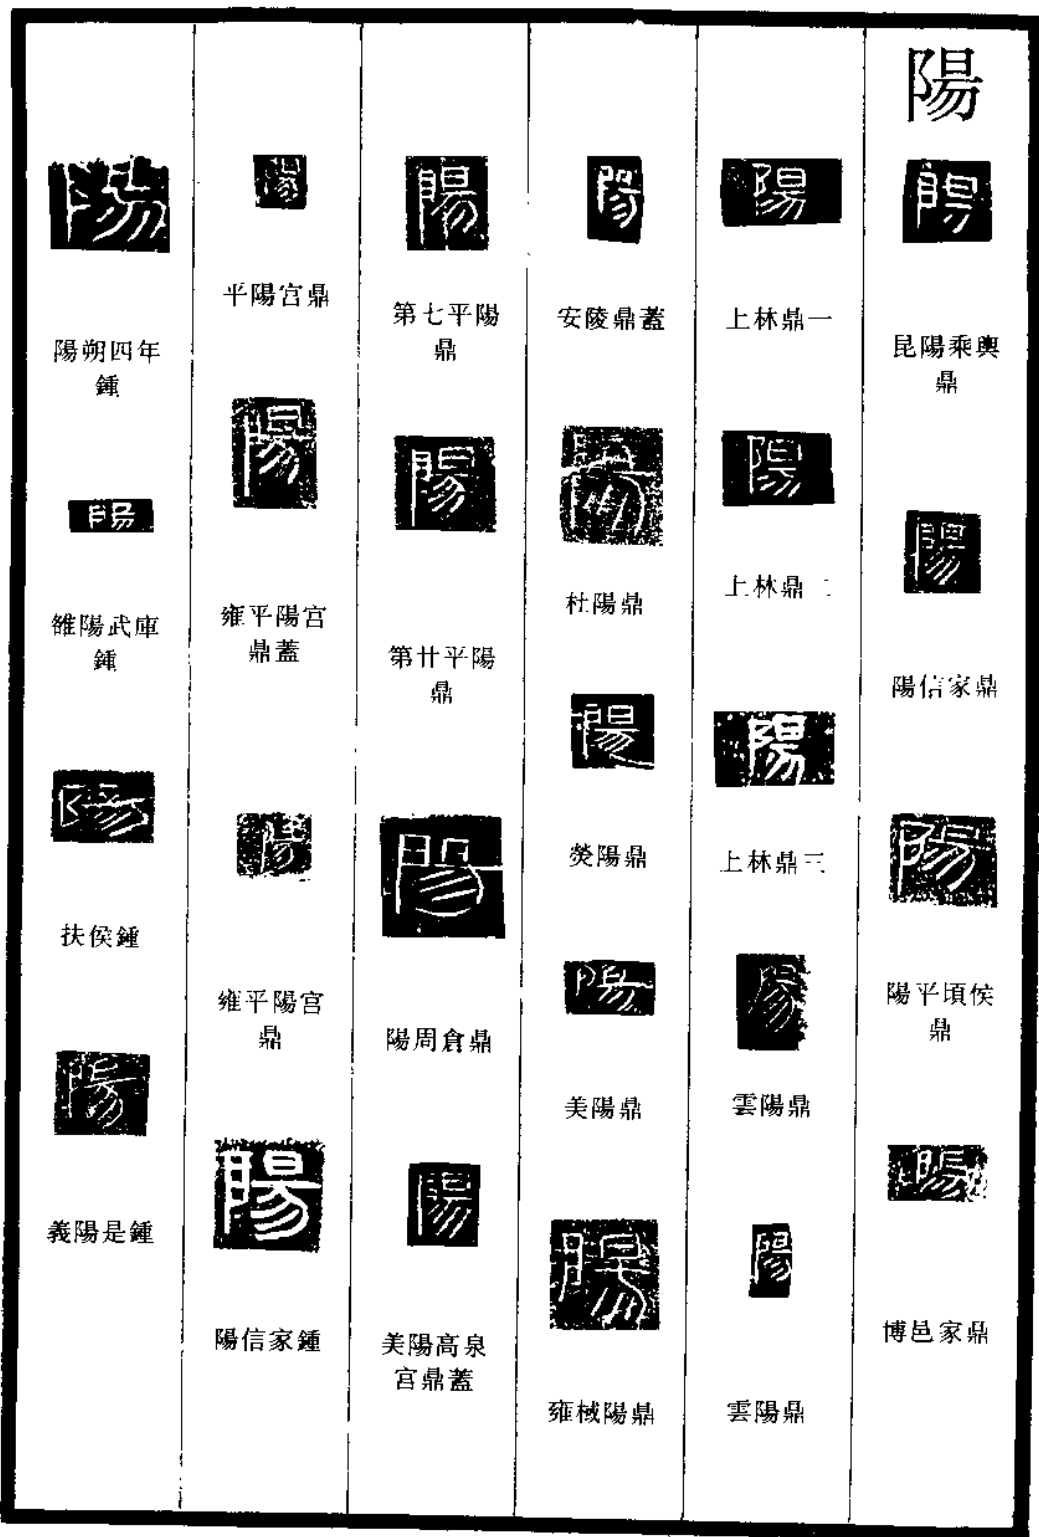 陽
陽
昆陽乘輿
鼎
陽
陽信家鼎
陽
陽平頃侯
鼎
陽
博邑家鼎
陽
上林鼎一
陽
上林鼎二
陽
上林鼎三
陽
雲陽鼎
陽
雲陽鼎
陽
安陵鼎蓋
陽
杜陽鼎
陽
熒陽鼎
陽
美陽鼎
陽
雍棫陽鼎
陽
第七平陽
鼎
陽
第廿平陽
鼎
陽
陽周倉鼎
陽
美陽高泉
宮鼎蓋
陽
平陽宮鼎
陽
雍平陽宮
鼎蓋
陽
雍平陽宮
鼎
陽
陽信家鍾
陽
陽朔四年
鍾
陽
雒陽武庫
鍾
陽
扶侯鍾
陽
義陽是鍾